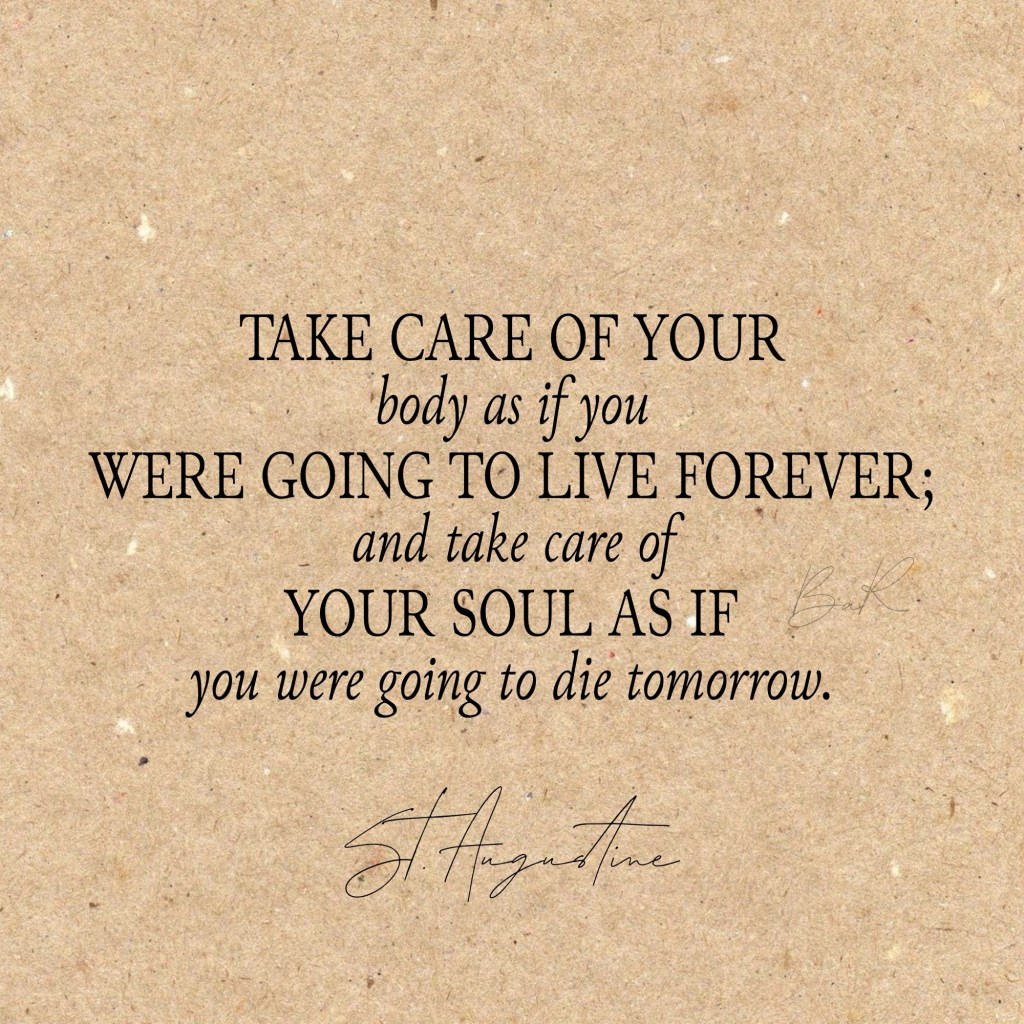 TAKE CARE OF YOUR
body as if you
WERE GOING TO LIVE FOREVER;
and take care of
YOUR SOUL AS IF
BaR
you were going to die tomorrow.
St. Augustine